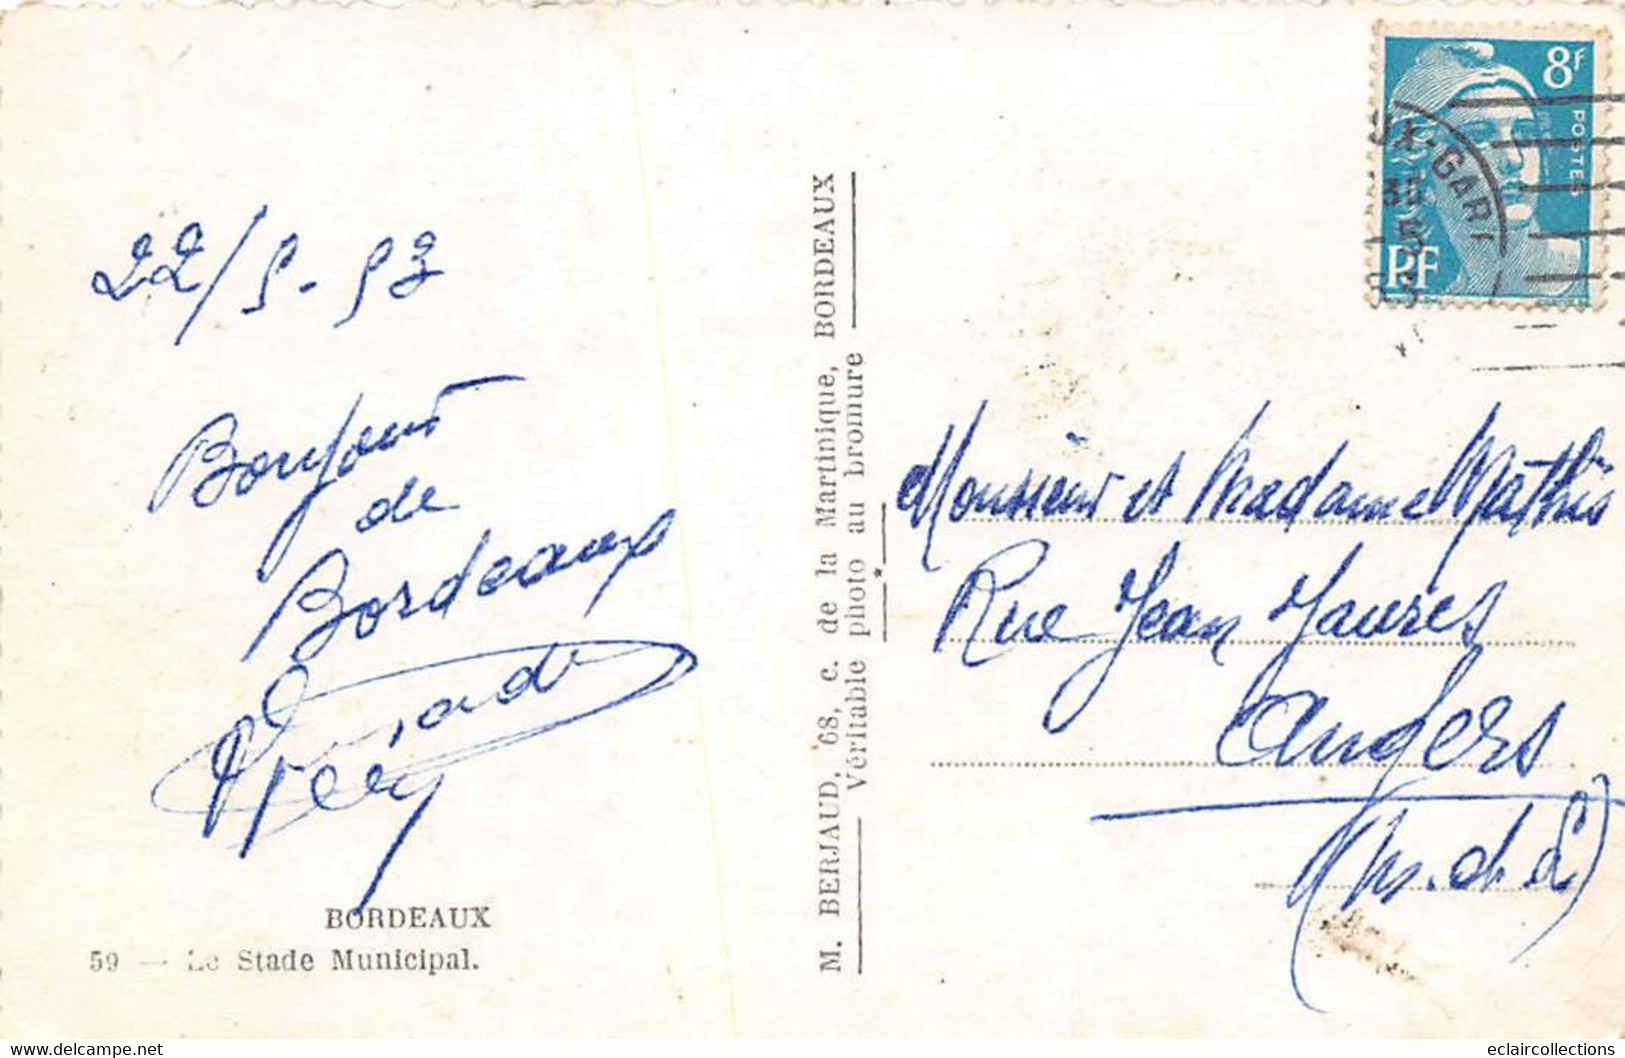 22/5-53
Bonjour
de
Bordeaux
BORDEAUX
59 — Le Stade Municipal.
M. BERJAUD, 68, c. de la Martinique, BORDEAUX
Véritable photo au bromure
8f
POSTES
RF
UX-GARE
30
5
53
Monsieur et Madame Mathis
Rue Jean Jaures
Angers
(M. et. L)
eclaircollections